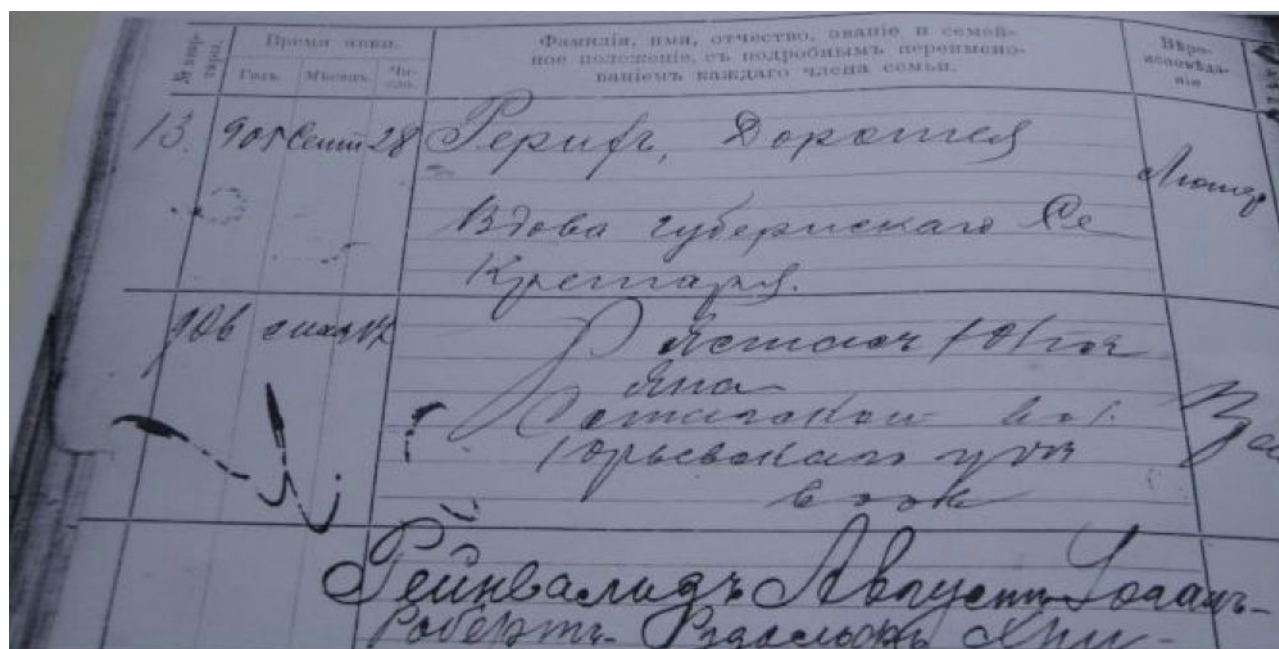 № явки
Время явки.
Годъ. Мѣсяцъ. Чи-
сло.
Фамилія, имя, отчество, званіе и семей-
ное положеніе, съ подробнымъ переимено-
ваніемъ каждаго члена семьи.
Вѣро-
исповѣда-
ніе
13. 905 Сент 28 Рерихъ, Доротея
Лютер
Вдова губернскаго Се
Кретаря.
906
Яна
Юрьевскаго
Рейнвальдъ Августъ-Іоганъ-
Робертъ- Рудольфъ Хри-